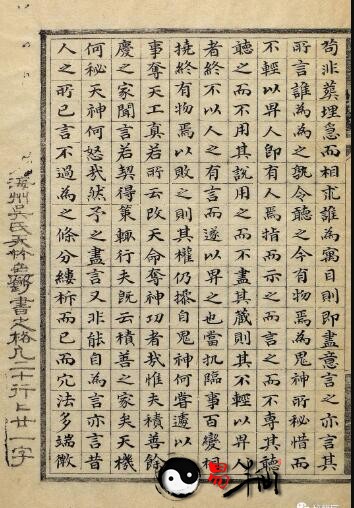 苟非葬埋急而相求誰為寓目則即盡意言之亦言其
所言誰為為之孰令聽之今有物焉為鬼神所秘惜而
不輕以畀人即有人焉指而示之言之而不專其聽
聽之而不用其說用之而不盡其蔵則其不輕以畀人
者終不以人之有言而遂以畀之也當臨事百變
撓終有物焉以敗之則其權仍操自鬼神何嘗遽以
事奪天工真若所云改天命奪神功者哉惟夫積善餘
慶之家聞言若契得策輒行夫既云積善之家矣天機
何秘天神何怒我然予之盡言又非能自為言亦言昔
人之所已言不過為之條分縷析而已而穴法多端微
州吳氏書之格凡二十行上廿一字
易